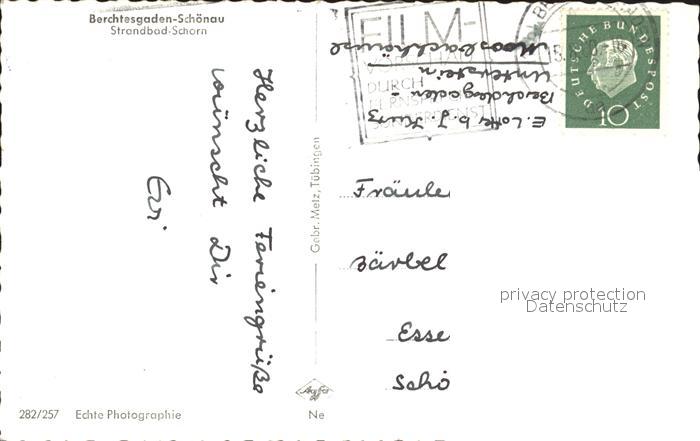 Berchtesgaden-Schönau
Strandbad-Schorn
Herzliche Feriengrüße
wünscht Dir
Evi
Gebr. Metz, Tübingen
E. Lotte b. J. Kurz
Berchtesgaden-
Unterstein
Moosbachhäusl
FILM-
DURCH
DEUTSCHE BUNDESPOST
10
Fräule
Bärbel
Esse
Schö
privacy protection
Datenschutz
Agfa
282/257 Echte Photographie
Ne